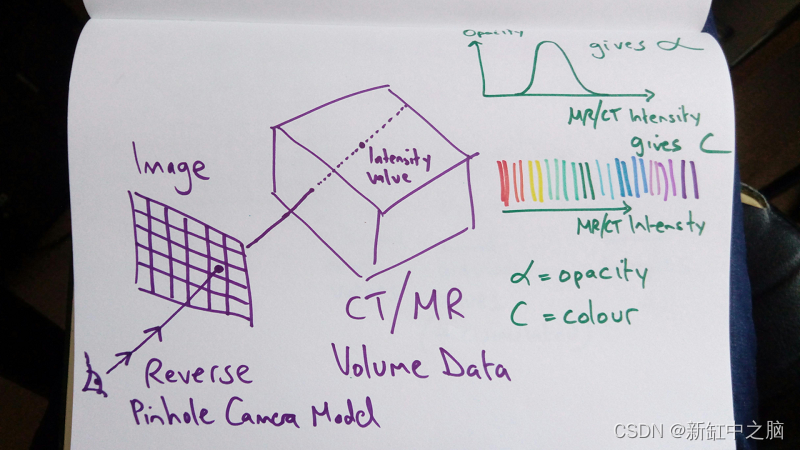 Opacity
gives α
MR/CT Intensity
gives C
MR/CT Intensity
α = opacity
C = colour
Image
Intensity
value
CT/MR
Volume Data
Reverse
Pinhole Camera Model
CSDN @新缸中之脑